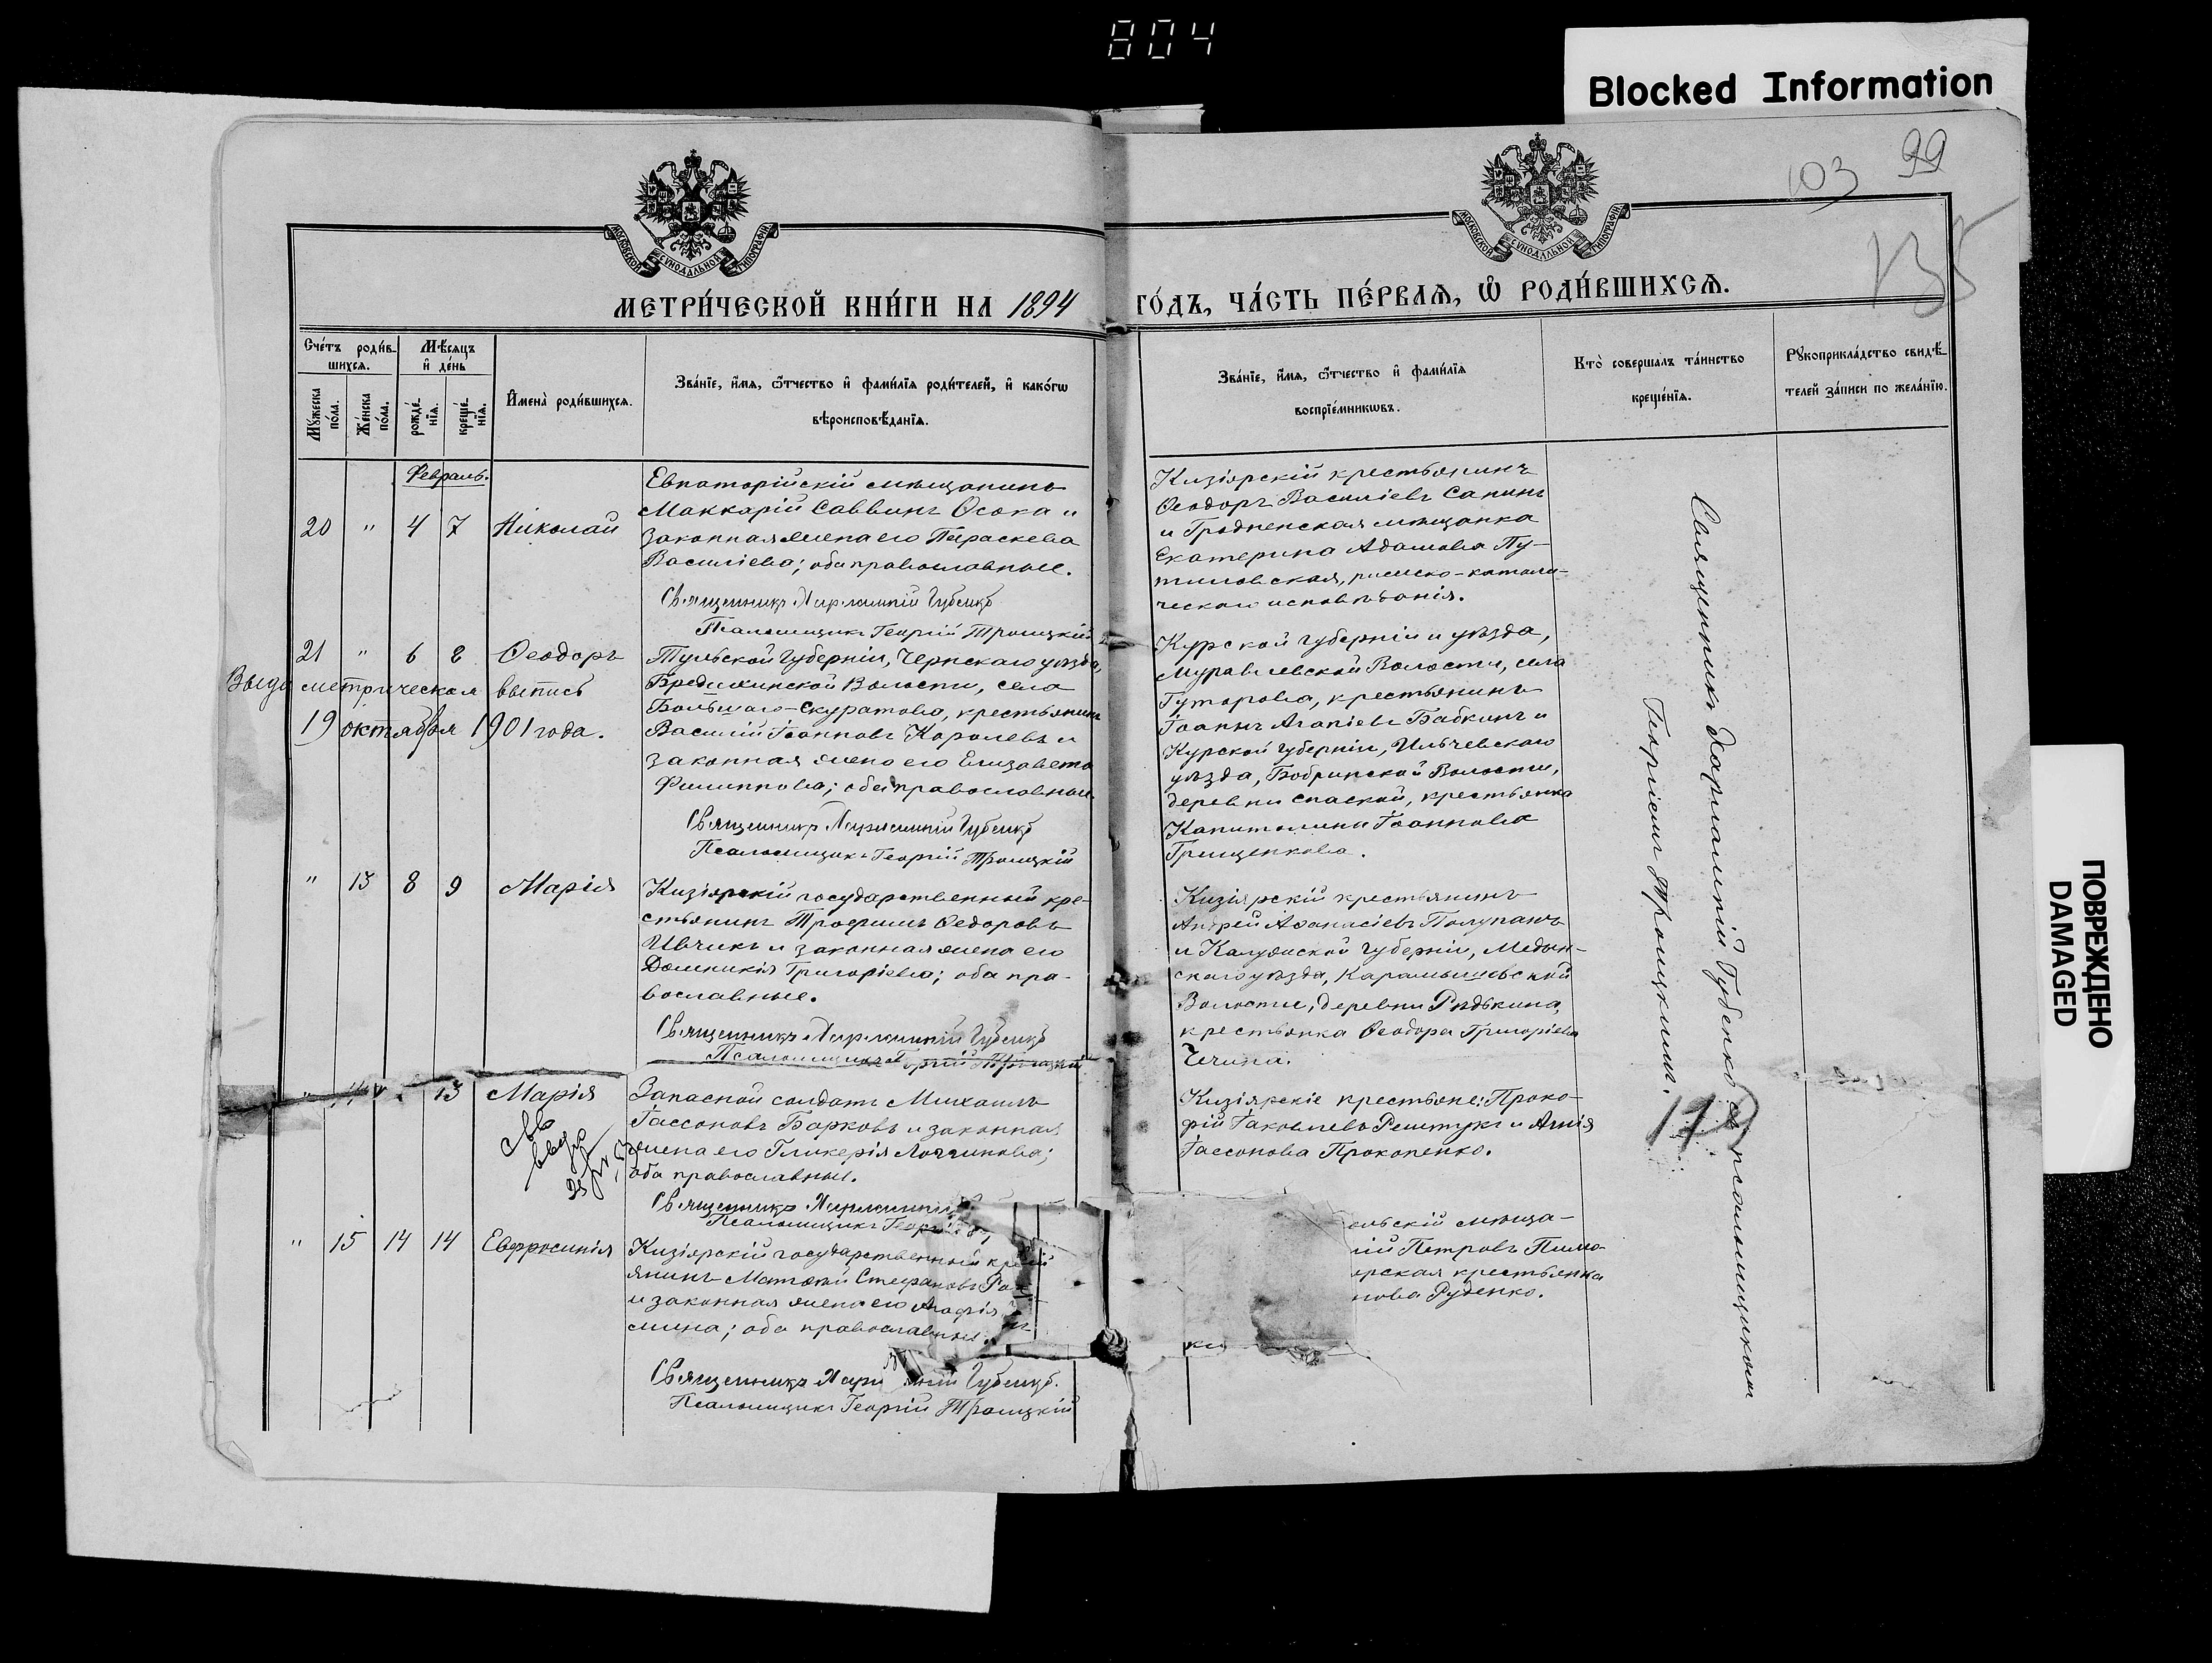 804
Blocked Information
103 99
135
МОСКОВСКОЙ СѴНОДАЛЬНОЙ ТИПОГРАФІИ
МОСКОВСКОЙ СѴНОДАЛЬНОЙ ТИПОГРАФІИ
МЕТРИ́ЧЕСКОЙ КНИ́ГИ НА 1894 ГО́ДЪ, ЧА́СТЬ ПЕ́РВАѦ, Ѡ҆ РОДИ́ВШИХСѦ.
Сче́тъ роди́в-
шихсѧ.
Мꙋжеска по́ла.
Же́нска по́ла.
Мѣ́сяцъ и҆ де́нь
рожде́-нїѧ.
креще́-нїѧ.
И҆мена̀ роди́вшихсѧ.
Зва́нїе, и҆́мѧ, ѻ҆́тчество и҆ фами́лїѧ роди́телей, и҆ како́гѡ
вѣроисповѣ́данїѧ.
Зва́нїе, и҆́мѧ, ѻ҆́тчество и҆ фами́лїѧ
воспрїе́мникѡвъ.
Кто̀ соверша́лъ та́инство
креще́нїѧ.
Рꙋкоприкла́дство свидѣ́-
телей за́писи по жела́нїю.
Февраль.
20 " 4 7 Николай
Евпаторійскій мѣщанинъ
Маккарій Саввинъ Осока и
законная жена его Параскева
Василіева; оба православные.
Священникъ Харлампій Губенко
Псаломщикъ Георгій Троицкій
Кизіярскій крестьянинъ
Ѳеодоръ Василіевъ Сапинъ
и Гродненская мѣщанка
Екатерина Адамова Пу-
тиловская, римско-католи-
ческаго исповѣданія.
21 " 6 8 Ѳеодоръ
Выда метрическая выпись
19 октября 1901 года.
Тульской Губерніи, Чернскаго уѣзда,
Бредихинской Волости, села
Большаго-Скуратова, крестьянинъ
Василій Іоанновъ Королевъ и
законная жена его Елизавета
Филиппова; оба православные.
Священникъ Харлампій Губенко
Псаломщикъ Георгій Троицкій
Курской губерніи и уѣзда,
Муравлевской Волости, села
Гуторова, крестьянинъ
Іоаннъ Агапіевъ Бабкинъ и
Курской губерніи, Ильчевскаго
уѣзда, Бобринской Волости,
деревни Спаской, крестьянка
Капитолина Іоаннова
Грищенкова.
" 13 8 9 Марія
Кизіярскій государственный кре-
стьянинъ Трофимъ Ѳедоровъ
Ивчикъ и законная жена его
Домникія Григоріева; оба пра-
вославные.
Священникъ Харлампій Губенко
Псаломщикъ Георгій Троицкій
Кизіярскій крестьянинъ
Андрей Аѳанасіевъ Полупанъ
и Калужской Губерніи, Медын-
скаго уѣзда, Карамышевской
Волости, деревни Рѣдькина,
крестьянка Ѳеодора Григоріева
Чечина.
" 14 13 Марія
Запасной солдатъ Михаилъ
Іассоновъ Барковъ и законная
жена его Гликерія Логгинова;
оба православные.
Священникъ Харлампій
Псаломщикъ Георгій
Кизіярскіе крестьяне: Проко-
фій Іаковлевъ Решетукъ и Агнія
Іассонова Прокопенко.
" 15 14 14 Евфросинія
Кизіярскій государственный кре
янинъ Матѳей Стефановъ
и законная жена его Агафія
мина; оба православные.
Священникъ Хар мпій Губенко.
Псаломщикъ Георгій Троицкій
ольскій мѣща-
ій Петровъ Пимо-
рская крестьянка
нова Руденко.
кія
Священникъ Харлампій Губенко съ псаломщикомъ
Георгіемъ Троицкимъ.
ПОВРЕЖДЕНО
DAMAGED